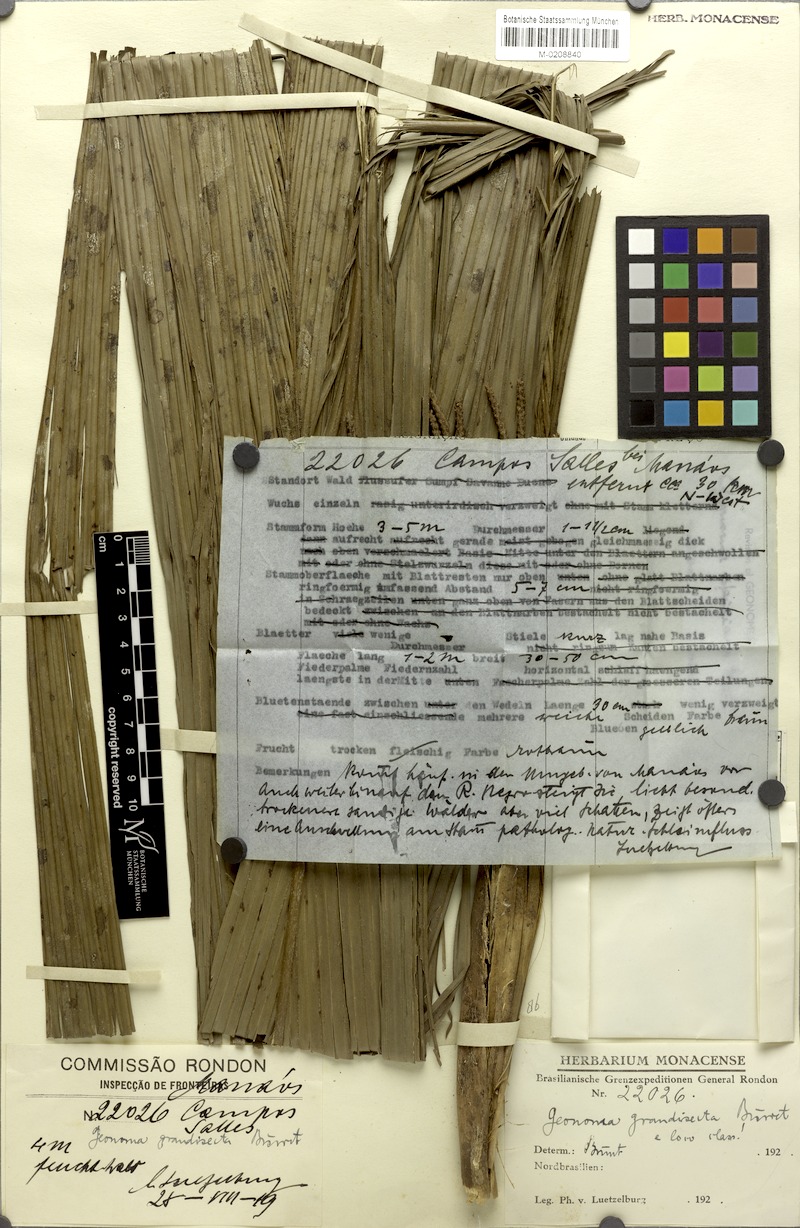 Botanische Staatssammlung München
M-0208840
HERB. MONACENSE
22026 Campos Salles bei Manáos
Standort Wald flussufer Sumpf Savanne Busch entfernt ca 30 km
N-West
Wuchs einzeln rasig unterirdisch verzweigt ohne mit Stamm kletternd
Stammform Hoehe 3-5 m Durchmesser 1-1½ cm liegend
aufrecht aufrecht gerade meist gebogen gleichmassig dick
nach oben verschmalert Basis Mitte unter den Blaettern angeschwollen
mit oder ohne Stelzwurzeln diese mit oder ohne Dornen
Stammoberflaeche mit Blattresten nur oben unten ohne glatt Blattnarben
ringfoermig umfassend Abstand 5-7 cm nicht ringfoermig
in Schraegzeilen unten ganz oben von Fasern aus den Blattscheiden
bedeckt zwischen an den Blattnarben bestachelt nicht bestachelt
mit oder ohne Wachs
Blaetter viele wenige Stiele kurz lag nahe Basis
Durchmesser nicht ringsum kanten bestachelt
Flaeche lang 1-2 m breit 30-50 cm
Fiederpalme Fiedernzahl horizontal schlaff haengend
laengste in derMitte unten Faecherpalme Zahl der groesseren Teilungen
Bluetenstaende zwischen unter den Wedeln Laenge 30 cm wenig verzweigt
eine fast einschliessende mehrere weiche Scheiden Farbe braun
Blueben gelblich
Frucht trocken fleischig Farbe rotbraun
Bemerkungen Kommt häuf. in der Umgeb. von Manáos vor
Auch weiter hinauf dem R. Negro steigt sie, liebt besond.
trockenere sandige Wälder aber viel Schatten, zeigt öfters
eine Anschwellung am Stam patholog. Natur.
Luetzelburg
0 1 2 3 4 5 6 7 8 9 10
cm
copyright reserved
BOTANISCHE
STAATSSAMMLUNG
MÜNCHEN
86
COMMISSÃO RONDON
INSPECÇÃO DE FRONTEIRAS
Manáos
No 22026 Campos
Salles
Geonoma grandisecta Burret
4 m
feucht Wald
Luetzelburg
28-VIII-29
HERBARIUM MONACENSE
Brasilianische Grenzexpeditionen General Rondon
Nr. 22026.
Geonoma grandisecta Burret
e loco class.
Determ.: Burret . 192 .
Nordbrasilien:
Leg. Ph. v. Luetzelburg . 192 .